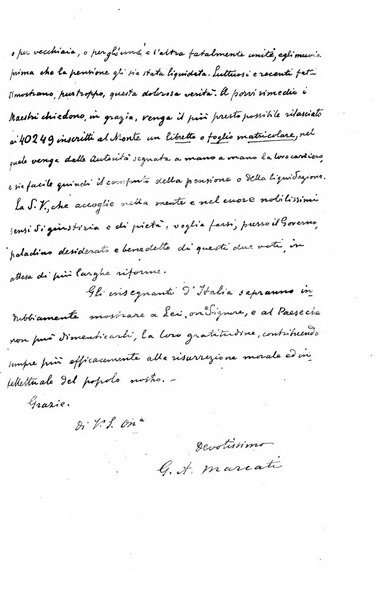 o per vecchiaia, o per gli uni e l'altra fatalmente unite, egli muoia
prima che la pensione gli sia stata liquidata. Luttuosi e recenti fat-
ti mostrano, purtroppo, questa dolorosa verità. A porvi rimedio i
Maestri chiedono, in grazia, venga il più presto possibile rilasciato
ai 40249 inscritti al Monte un libretto o foglio matricolare, nel
quale venga dalle Autorità segnata a mano a mano la loro carriera,
e sia facile quindi il computo della pensione o della liquidazione.
La S.V., che accoglie nella mente e nel cuore nobilissimi
sensi di giustizia e di pietà, voglia farsi, presso il Governo,
paladino desiderato e benedetto di questi due voti, in
attesa di più larghe riforme.
Gli insegnanti d'Italia sapranno in-
dubbiamente mostrare a Lei, on. Signore, e al Paese che
non può dimenticarli, la loro gratitudine, contribuendo
sempre più efficacemente alla risurrezione morale ed in-
tellettuale del popolo nostro. —
Grazie.
Di V. S. On.a
Devotissimo
G. A. Marcati